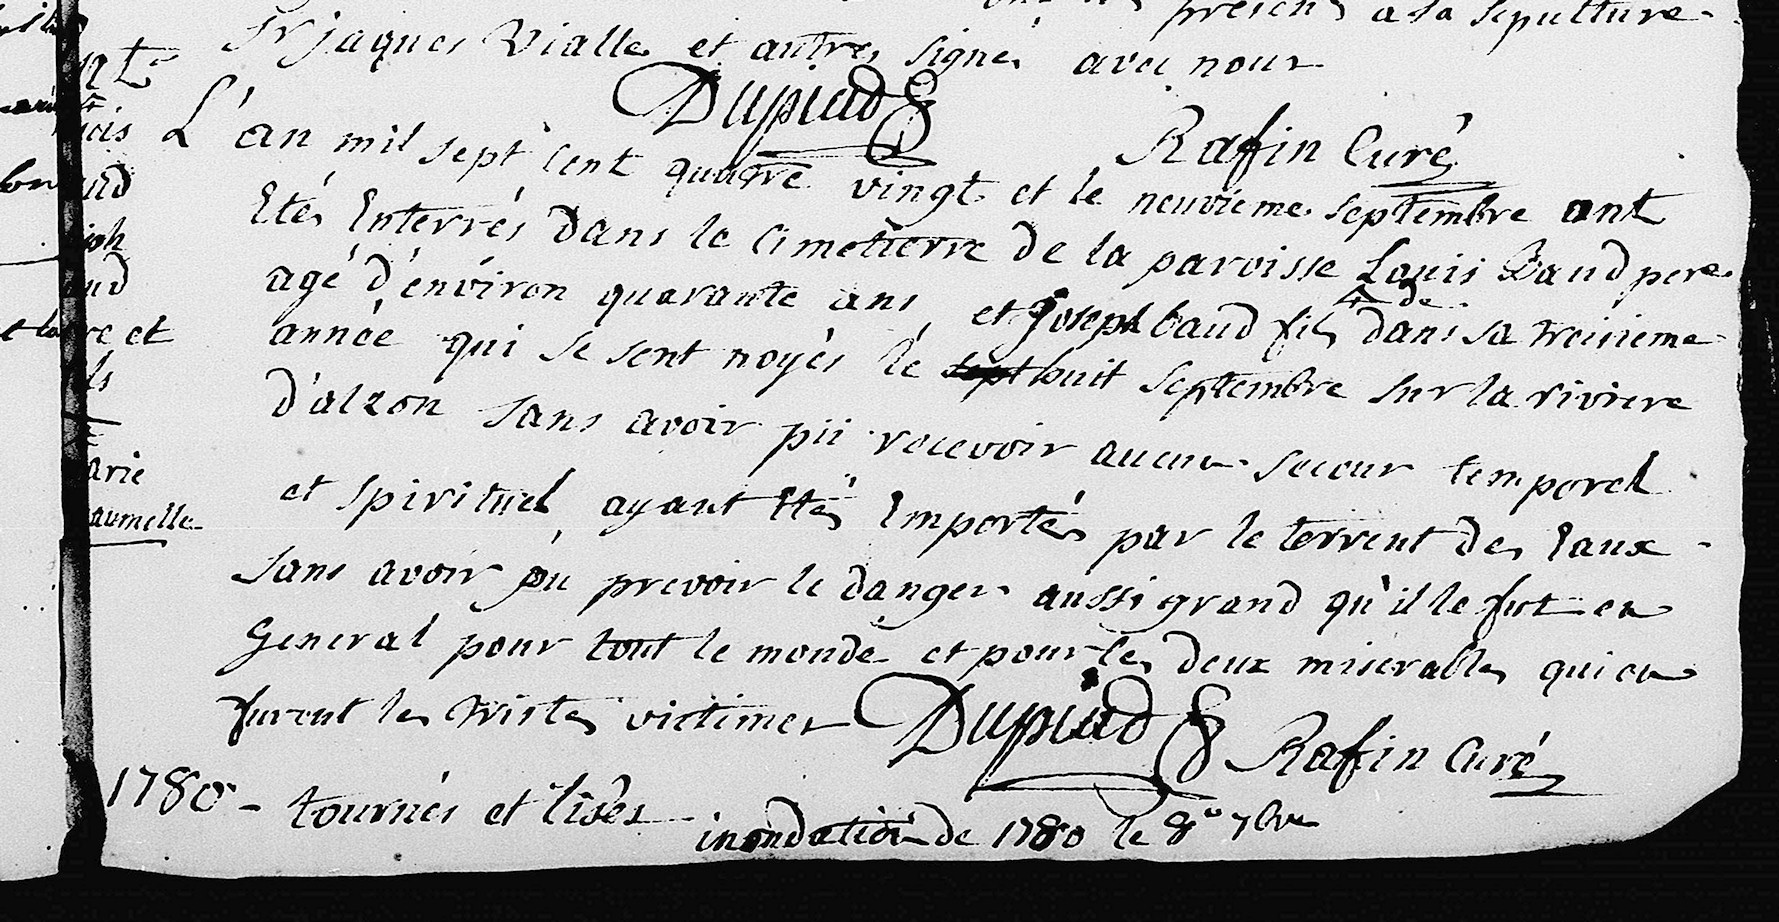 presens a la sepulture
Sr jaques Vialle et autres signés avec nous
Dupiad
Rafin Curé
L'an mil sept cent quatre vingt et le neuvieme septembre ont
Etés Enterrés dans le cimetierre de la paroisse Louis Baud pere
agé d'énviron quarante ans et Joseph baud fils dans sa troisieme
de
année qui se sont noyés lé sept huit septembre sur la riviere
D'alzon sans avoir pü recevoir aucun secour temporel
et spirituel ayant Etés Emportés par le torrent des Eaux
sans avoir pu prevoir le danger aussi grand qu'il le fut en
General pour tout le monde et pour les deux miserables qui en
furent les tristes victimes Dupiad Rafin Curé
1780 - tournés et lisés
inondation de 1780 le 8e 7bre
arie
aumelle